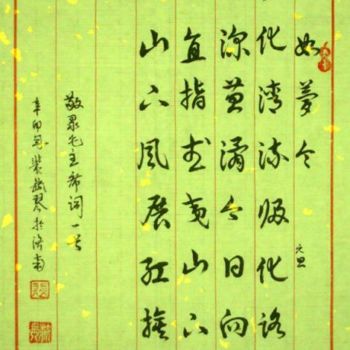 如夢令 元旦
化清流归化路
深苔滑今日向
直指武夷山下
山下風展红旗
敬录毛主席词一首
辛卯 琴於济南